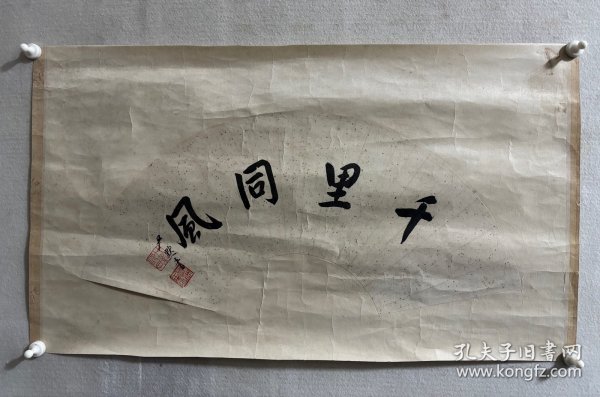 千里同風
孔夫子旧書网
www.kongfz.com